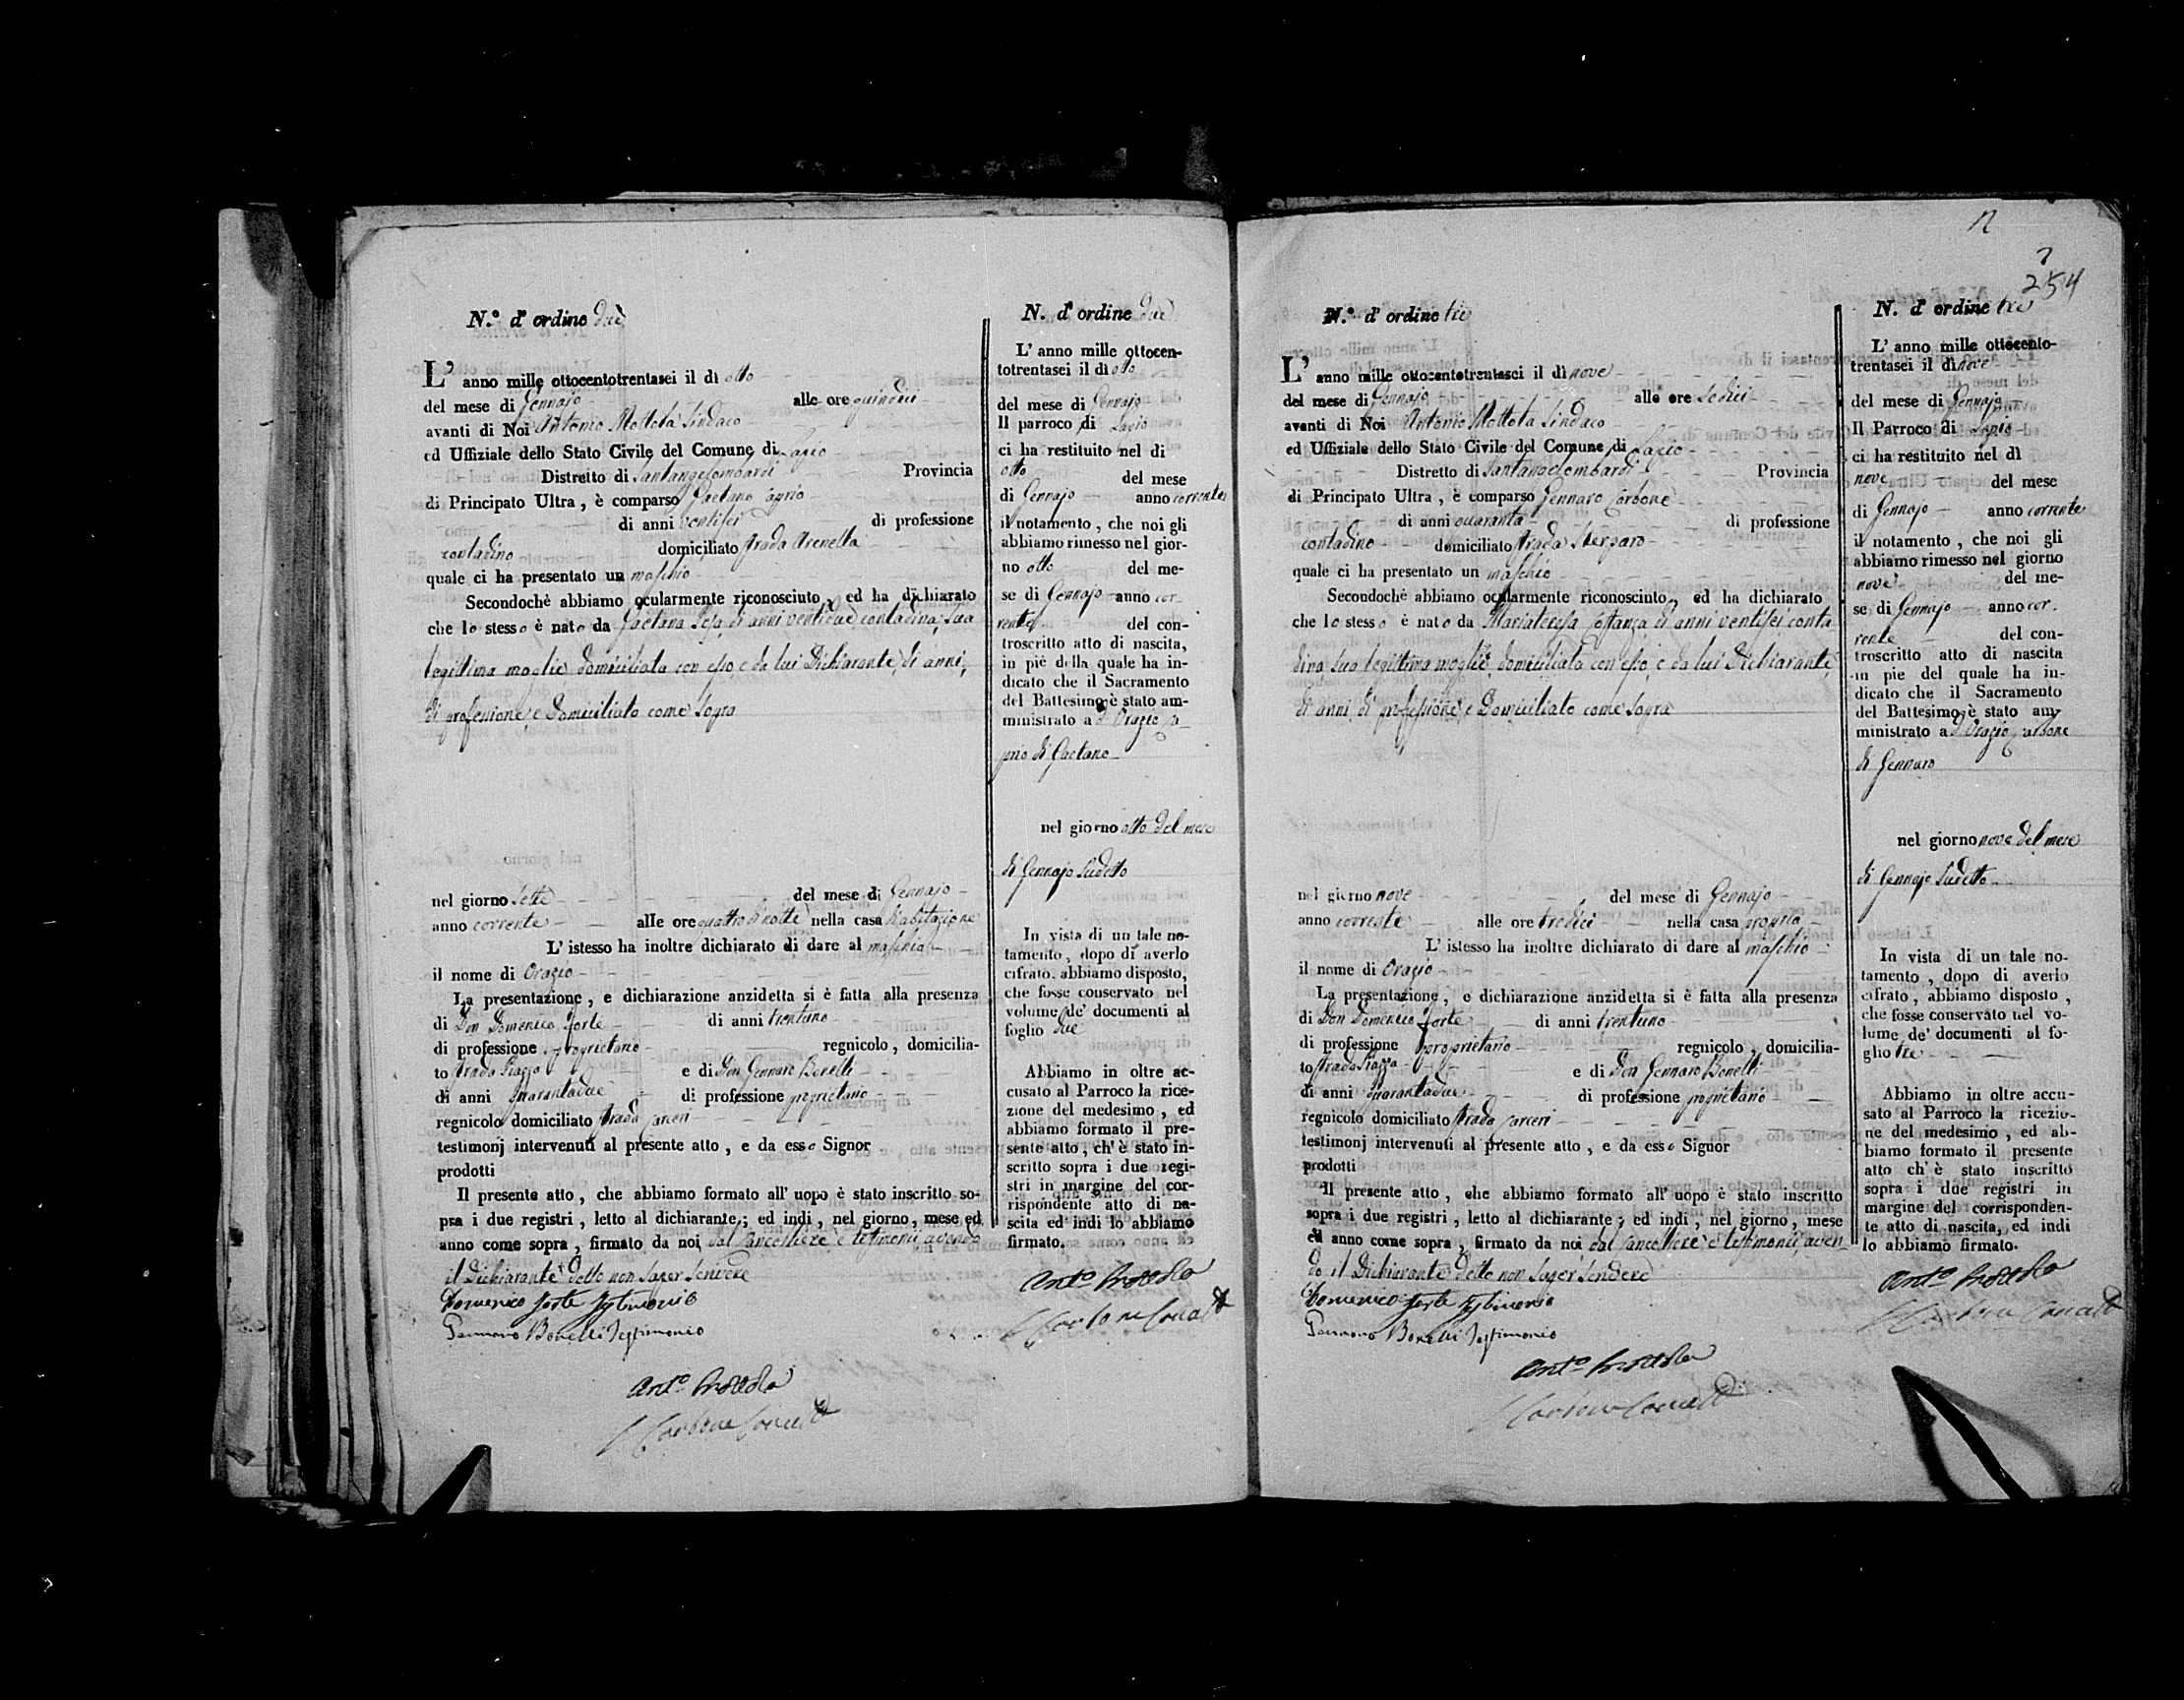 N.º d' ordine due
L' anno mille ottocentotrentasei il dì otto
del mese di Gennajo alle ore quindici
avanti di Noi Antonio Mottola Sindaco
ed Uffiziale dello Stato Civile del Comune di Lapio
Distretto di Santangelombardi Provincia
di Principato Ultra , è comparso Gaetano
di anni ventisei di professione
contadino domiciliato strada Arenella
quale ci ha presentato un maschio
Secondochè abbiamo ocularmente riconosciuto , ed ha dichiarato
che lo stesso è nato da Gaetana di anni ventidue contadina, sua
legittima moglie domiciliata con esso, e da lui Dichiarante di anni,
di professione, e domiciliato come sopra
nel giorno sette del mese di Gennajo
anno corrente alle ore quattro di notte nella casa d'abitazione
L' istesso ha inoltre dichiarato di dare al maschio
il nome di Orazio
La presentazione , e dichiarazione anzidetta si è fatta alla presenza
di Don Domenico Forte di anni trentuno
di professione proprietario regnicolo , domicilia-
to strada Piazza e di Don Gennaro Bonelli
di anni quarantadue di professione proprietario
regnicolo domiciliato strada Carceri
testimonj intervenuti al presente atto , e da esso Signor
prodotti
Il presente atto , che abbiamo formato all' uopo è stato inscritto so-
pra i due registri , letto al dichiarante ; ed indi , nel giorno , mese ed
anno come sopra , firmato da noi, dal Cancelliere e testimonii avendo
il Dichiarante detto non saper scrivere
Domenico Forte Testimonio
Gennaro Bonelli Testimonio
Ant.º Mottola
N. d' ordine due
L' anno mille ottocen-
totrentasei il dì otto
del mese di Gennajo
Il parroco di Lapio
ci ha restituito nel dì
otto del mese
di Gennajo anno corrente
il notamento , che noi gli
abbiamo rimesso nel gior-
no otto del me-
se di Gennajo anno cor-
rente del con-
troscritto atto di nascita,
in piè della quale ha in-
dicato che il Sacramento
del Battesimo è stato am-
ministrato a Orazio
di Gaetano
nel giorno otto del mese
di Gennajo sudetto
In vista di un tale no-
tamento , dopo di averlo
cifrato, abbiamo disposto,
che fosse conservato nel
volume de' documenti al
foglio due
Abbiamo in oltre ac-
cusato al Parroco la rice-
zione del medesimo , ed
abbiamo formato il pre-
sente atto , ch' è stato in-
scritto sopra i due regi-
stri in margine del cor-
rispondente atto di na-
scita ed indi lo abbiamo
firmato.
Ant.º Mottola
12
3
254
N.º d' ordine tre
L' anno mille ottocentotrentasei il dì nove
del mese di Gennajo alle ore sedici
avanti di Noi Antonio Mottola Sindaco
ed Uffiziale dello Stato Civile del Comune di Lapio
Distretto di Santangelombardi Provincia
di Principato Ultra , è comparso Gennaro Carbone
di anni quaranta di professione
contadino domiciliato strada Sterparo
quale ci ha presentato un maschio
Secondochè abbiamo ocularmente riconosciuto , ed ha dichiarato
che lo stesso è nato da Mariateresa Costanza di anni ventisei conta
dina sua legittima moglie domiciliata con esso, e da lui Dichiarante
di anni, di professione, e Domiciliato come sopra
nel giorno nove del mese di Gennajo
anno corrente alle ore tredici nella casa propria
L' istesso ha inoltre dichiarato di dare al maschio
il nome di Orazio
La presentazione , e dichiarazione anzidetta si è fatta alla presenza
di Don Domenico Forte di anni trentuno
di professione proprietario regnicolo , domicilia-
to strada Piazza e di Don Gennaro Bonelli
di anni quarantadue di professione proprietario
regnicolo domiciliato strada Carceri
testimonj intervenuti al presente atto , e da esso Signor
prodotti
Il presente atto , che abbiamo formato all' uopo è stato inscritto
sopra i due registri , letto al dichiarante ; ed indi , nel giorno , mese
ed anno come sopra , firmato da noi, dal Cancelliere e testimonii, aven-
do il Dichiarante detto non saper scrivere
Domenico Forte Testimonio
Gennaro Bonelli Testimonio
Ant.º Mottola
N. d' ordine tre
L' anno mille ottocento-
trentasei il dì nove
del mese di Gennajo
Il Parroco di Lapio
ci ha restituito nel dì
nove del mese
di Gennajo anno corrente
il notamento , che noi gli
abbiamo rimesso nel giorno
nove del me-
se di Gennajo anno cor-
rente del con-
troscritto atto di nascita
in pie del quale ha in-
dicato che il Sacramento
del Battesimo è stato am-
ministrato a Orazio Carbone
di Gennaro
nel giorno nove del mese
di Gennajo sudetto
In vista di un tale no-
tamento , dopo di averlo
cifrato , abbiamo disposto ,
che fosse conservato nel vo-
lume de' documenti al fo-
glio tre
Abbiamo in oltre accu-
sato al Parroco la ricezio-
ne del medesimo , ed ab-
biamo formato il presente
atto ch' è stato inscritto
sopra i due registri in
margine del corrisponden-
te atto di nascita, ed indi
lo abbiamo firmato.
Ant.º Mottola